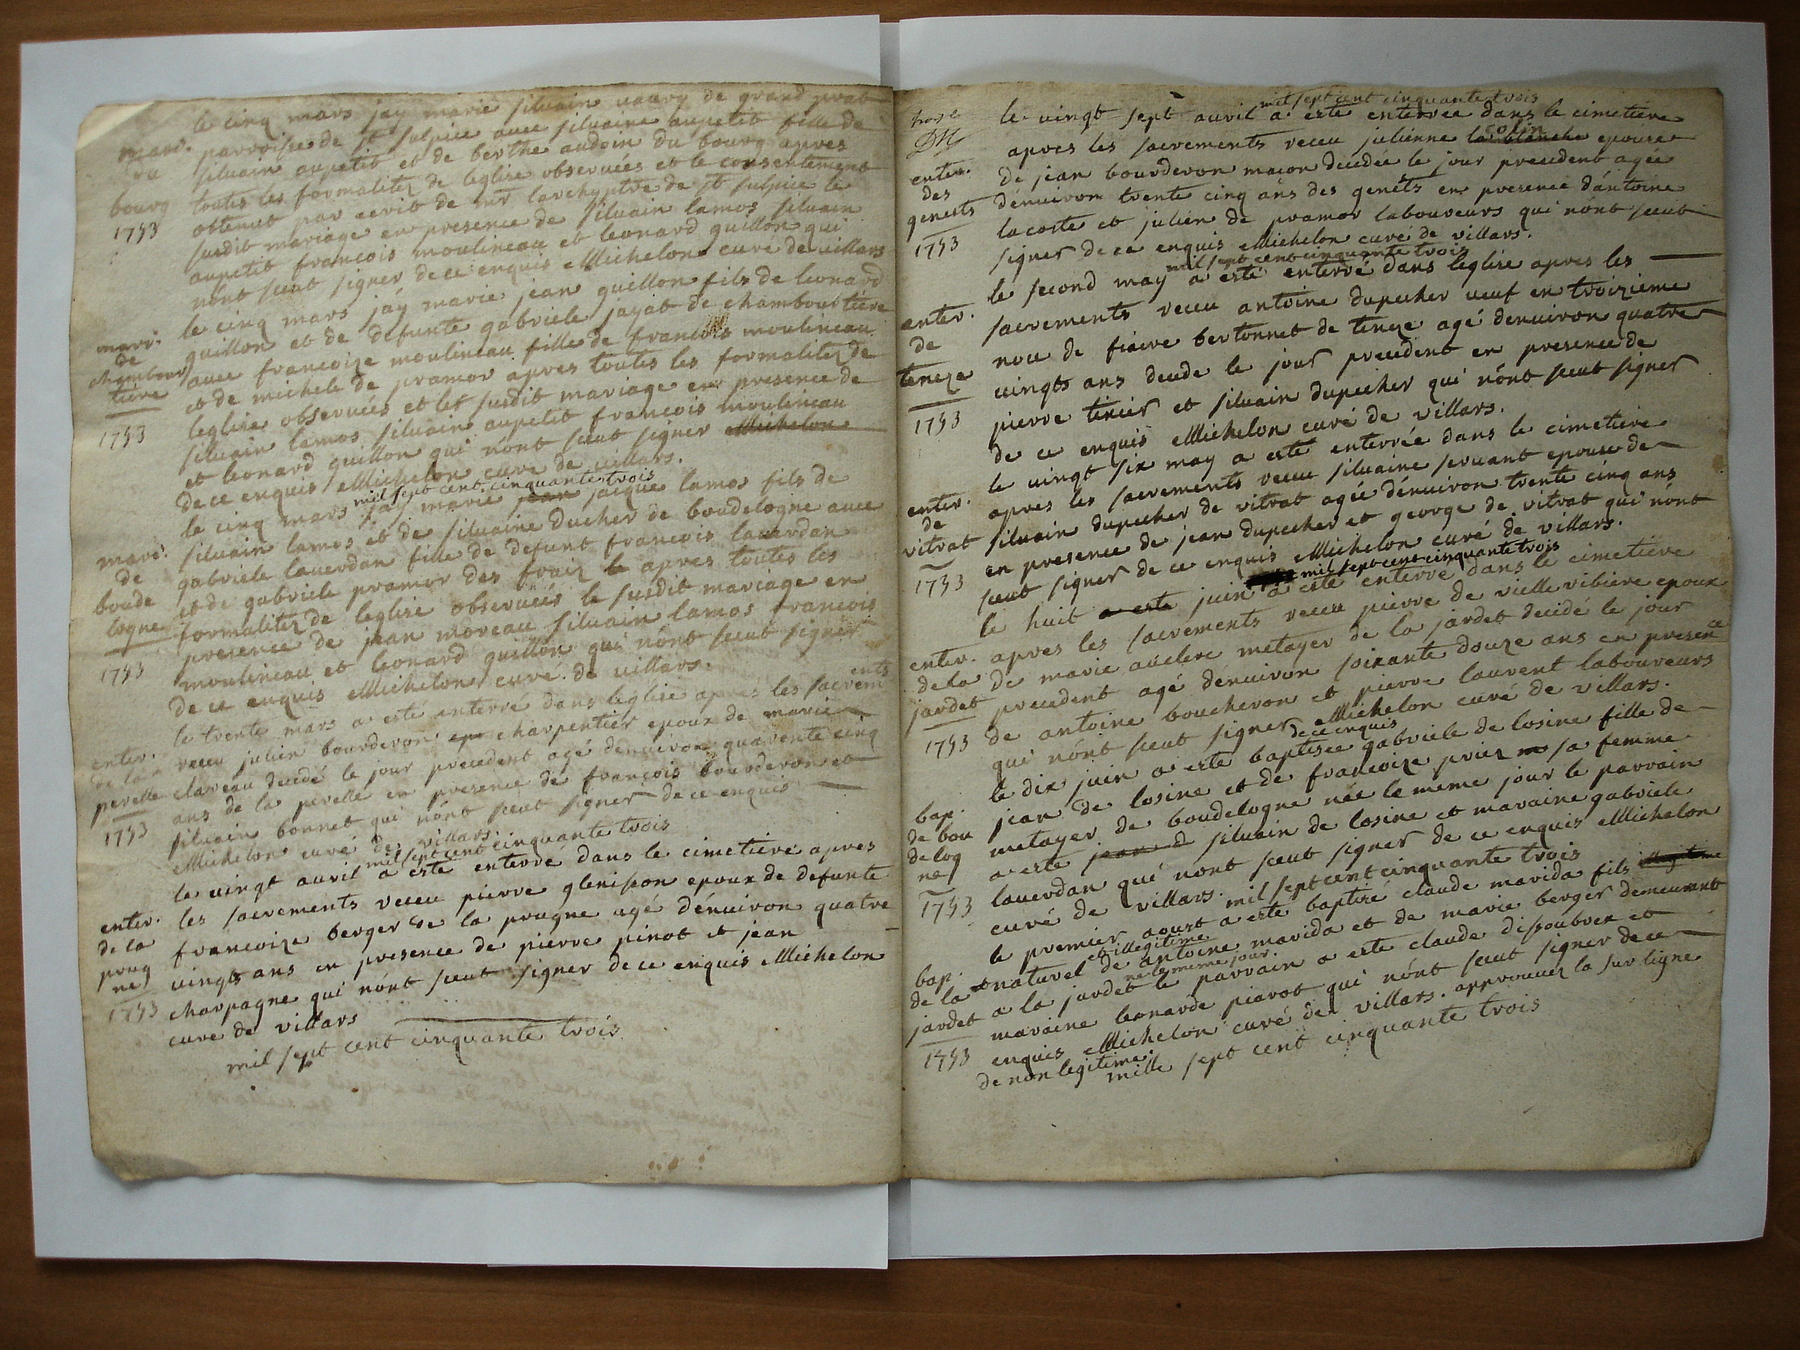 le cinq mars jay marié silvain vaury de grand prat
mari. parroisse de st sulpice avec silvaine aupetit fille de
du silvain aupetit et de berthe audoin du bourg apres
bourg toutes les formalitez de leglise observées et le consentement
1753 obtenut par ecrit de mr larchyptre de st sulpice le
susdit mariage en presence de silvain lamos silvain
aupetit francois moulineau et leonard guillon qui
nónt sceut signer de ce enquis Michelon curé de villars
le cinq mars jáy marie jean guillon fils de leonard
mari. guillon et de defunte gabriele jayat de chambourtiere
de avec francoize moulineau fille de francois moulineau
chambour et de michele de pramor apres toutes les formalitez de
tiere leglise observées et let susdit mariage en presence de
1753 silvain lamos silvain aupetit francois moulineau
et leonard guillon qui nónt sceut signer Michelon
de ce enquis Michelon curé de villars.
mil sept cent cinquante trois
le cinq mars jay marié jean jacque lamos fils de
mari. silvain lamos et de silvaine ducher de boudelogne avec
de gabriele laverdan fille de defunt francois laverdan
boude et de gabriele pramor des fraiz le apres toutes les
logne formalitez de leglise observées le susdit mariage en
presence de jean moreau silvain lamos francois
1753 moulineau et leonard guillon qui nónt sceut signer
de ce enquis Michelon curé de villars.
ents
le trente mars a esté enterré dans leglise apres les sacrem
enter. receu julien bourderon charpentier epoux de marie
de la claveau decedé le jour precedent agé dénviron quarente cinq
perelle ans de la perelle en presence de françois bourderon et
1753 silvain bonnet qui nónt sceut signer de ce enquis
Michelon curé de villars
mil sept cent cinquante trois
le vingt avril a esté enterré dans le cimetiere apres
enter. les sacrements receu pierre glenisson epoux de defunte
de la francoize berger de la prugne agé dénviron quatre
prug vingts ans en presence de pierre pinot et jean
ne charpagne qui nónt sceut signer de ce enquis Michelon
1753 curé de villars
mil sept cent cinquante trois
mil sept cent cinquante trois
le vingt sept avril a esté enterrée dans le cimetiere
colin
apres les sacrements receu julienne la blanche epouse
enter. de jean bourderon macon decedée le jour precedent agée
des dénviron trente cinq ans des genéts en presence dántoine
genests lacoste et julien de pramor laboureurs qui nónt sceut
1753 signer de ce enquis Michelon curé de villars.
mil sept cent cinquante trois
le second may a esté enterré dans léglise apres les
enter. sacrements receu antoine dupecher veuf en troizieme
de noce de bertonnet de teneze agé denviron quatre
teneze vingts ans decede le jour precedent en presence de
1753 pierre tixier et silvain dupecher qui nónt sceut signer
de ce enquis Michelon curé de villars.
le vingt six may a esté enterrée dans le cimetiere
enter. apres les sacrements receu silvaine servant epouse de
de silvain dupecher de vitrat agée dénviron trente cinq ans
vitrat en presence de jean dupecher et george de vitrat qui nónt
1753 sceut signer de ce enquis Michelon curé de villars.
mil sept cent cinquante trois
le huit a esté juin a esté enterré dans le cimetiere
enter. apres les sacrements receu pierre de vielle ribiere epoux
de la de marie auclerc metayer de la jardet decedé le jour
jardet precedent agé dénviron soixante douze ans en presence
1753 de antoine boucheron et pierre laurent laboureurs
qui nónt sceut signer Michelon curé de villars.
de ce enquis
le dix juin a esté baptisée gabriele de losine fille de
bap. jean de losine et de francoize priez sa femme
de bou metayer de boudelogne née le meme jour le parrain
delog a esté jean d silvain de losine et maraine gabriele
ne laverdan qui nónt sceut signer de ce enquis Michelon
1753 curé de villars. mil sept cent cinquante trois
le premier aoust a esté baptisé claude marida fils
et illegitime
bap. naturel de antoine marida et de marie berger demeurant
né le meme jour.
de la a la jardet le parrain a esté claude dissoubrex et
jardet maraine leonarde piarot qui nónt sceut signer de ce
1753 enquis Michelon curé de villars. approuvez la sur ligne
de non legitime.
mille sept cent cinquante trois